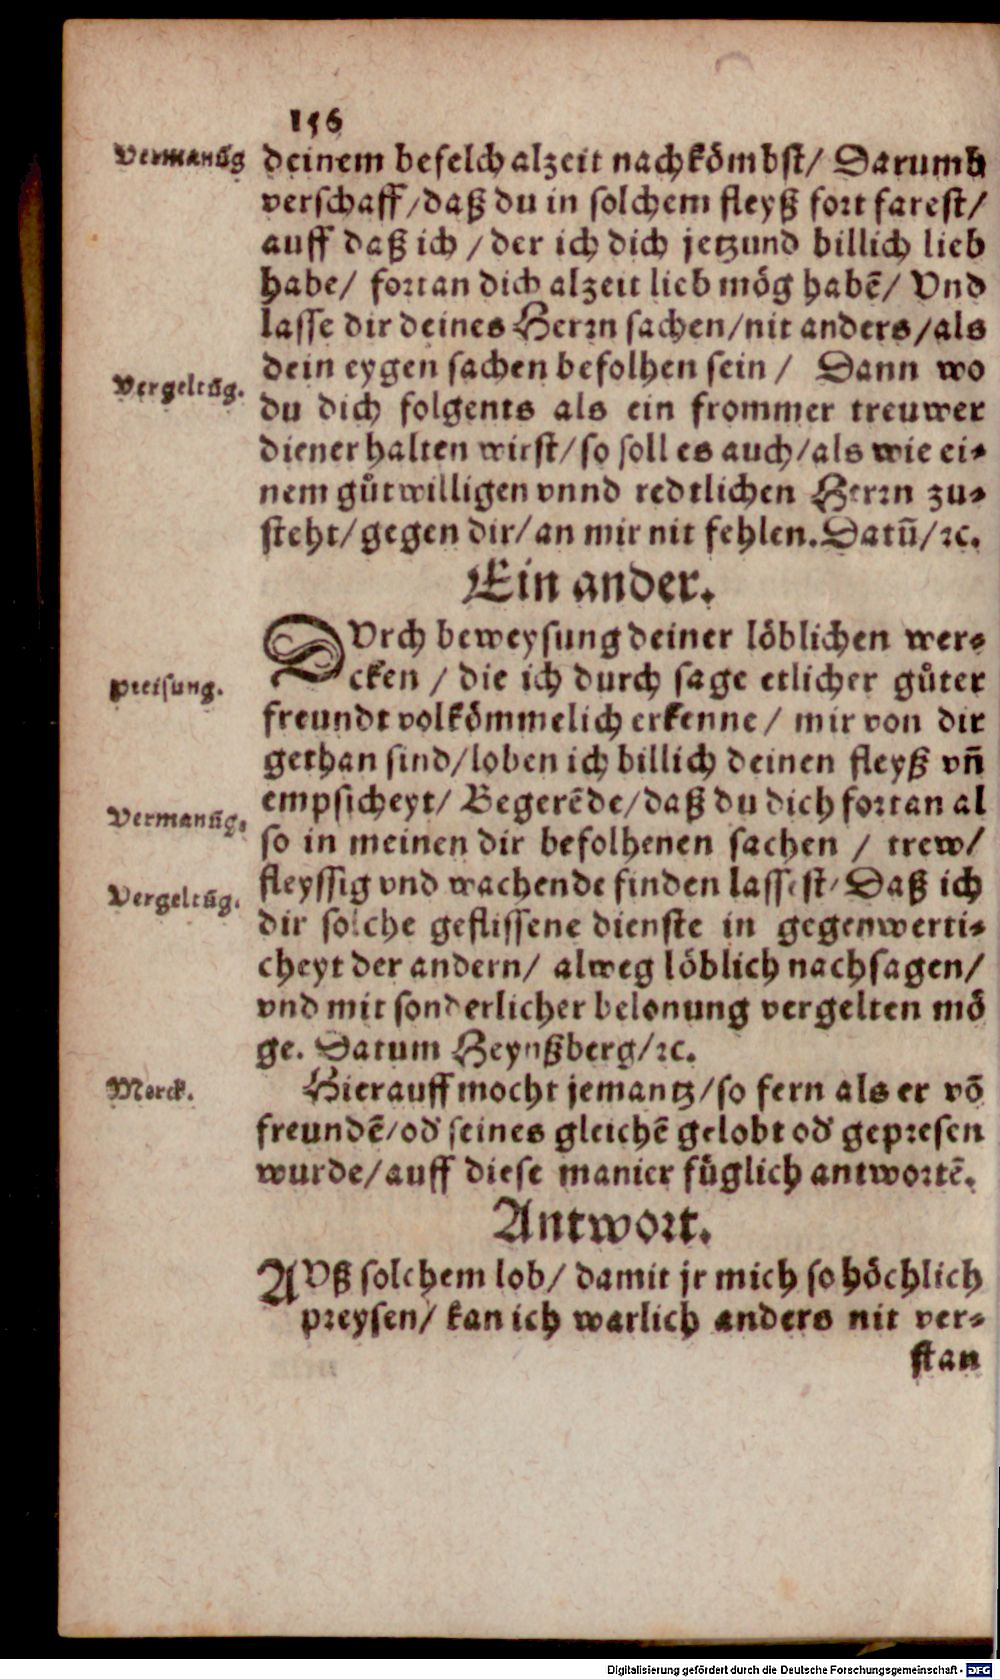 156
Vermanūg
deinem befelch alzeit nachkömbst/ Darumb
verschaff/daß du in solchem fleyß fort farest/
auff daß ich / der ich dich jetzund billich lieb
habe/ fortan dich alzeit lieb mög habē/ Vnd
lasse dir deines Herrn sachen/nit anders/als
dein eygen sachen befolhen sein / Dann wo
Vergeltūg.
du dich folgents als ein frommer treuwer
diener halten wirst/so soll es auch/als wie ei-
nem gůtwilligen vnnd redtlichen Herrn zu-
steht/gegen dir/an mir nit fehlen. Datū/ꝛc.
Ein ander.
DVrch beweysung deiner löblichen wer-
preisung.
cken / die ich durch sage etlicher gůter
freundt volkömmelich erkenne/ mir von dir
gethan sind/loben ich billich deinen fleyß vñ
empsicheyt/ Begerēde/daß du dich fortan al
Vermanūg.
so in meinen dir befolhenen sachen / trew/
fleyssig vnd wachende finden lassest/ Daß ich
Vergeltūg.
dir solche geflissene dienste in gegenwerti-
cheyt der andern/ alweg löblich nachsagen/
vnd mit sonderlicher belonung vergelten mö
ge. Datum Heynßberg/ꝛc.
Merck.
Hierauff mocht jemantz/so fern als er vō
freundē/od' seines gleichē gelobt od' gepresen
wurde/auff diese manier füglich antwortē.
Antwort.
AVß solchem lob/ damit jr mich so höchlich
preysen/ kan ich warlich anders nit ver-
stan
Digitalisierung gefördert durch die Deutsche Forschungsgemeinschaft - DFG